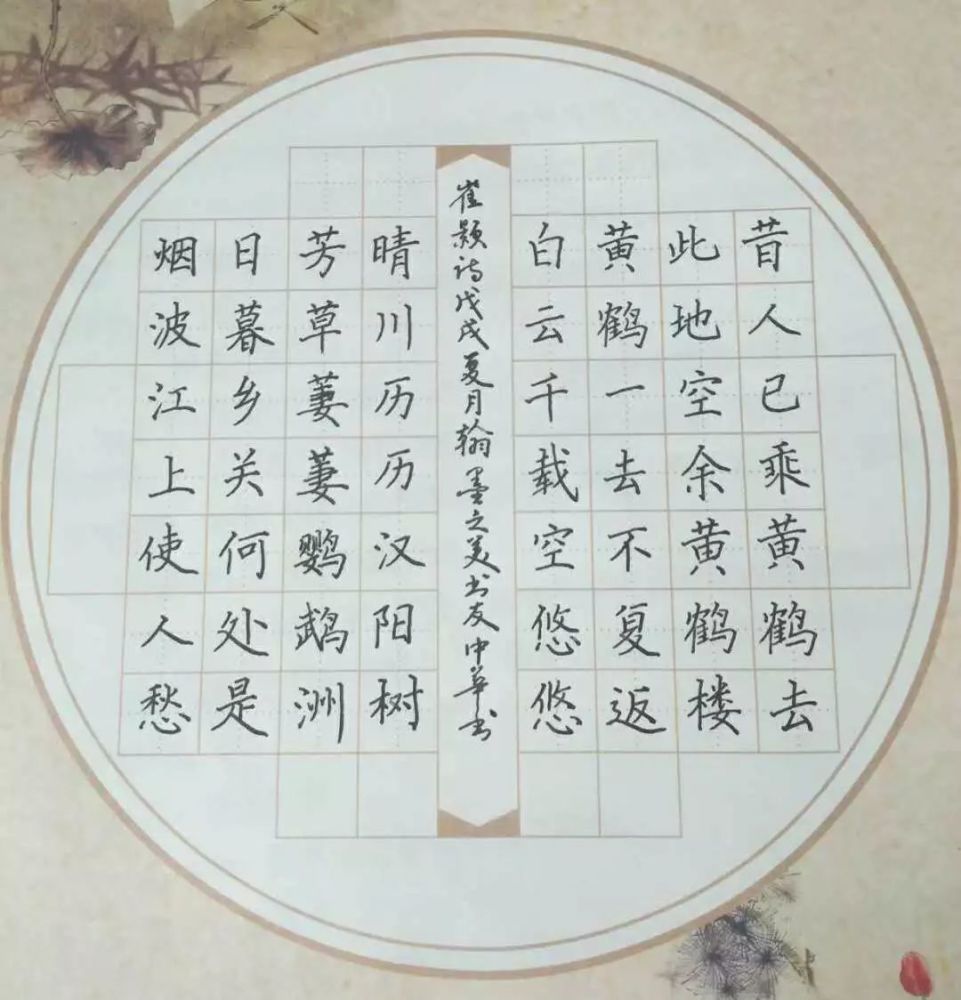 昔人已乘黄鹤去
此地空余黄鹤楼
黄鹤一去不复返
白云千载空悠悠
崔颢诗戊戌夏月翰墨之美书友中華书
晴川历历汉阳树
芳草萋萋鹦鹉洲
日暮乡关何处是
烟波江上使人愁